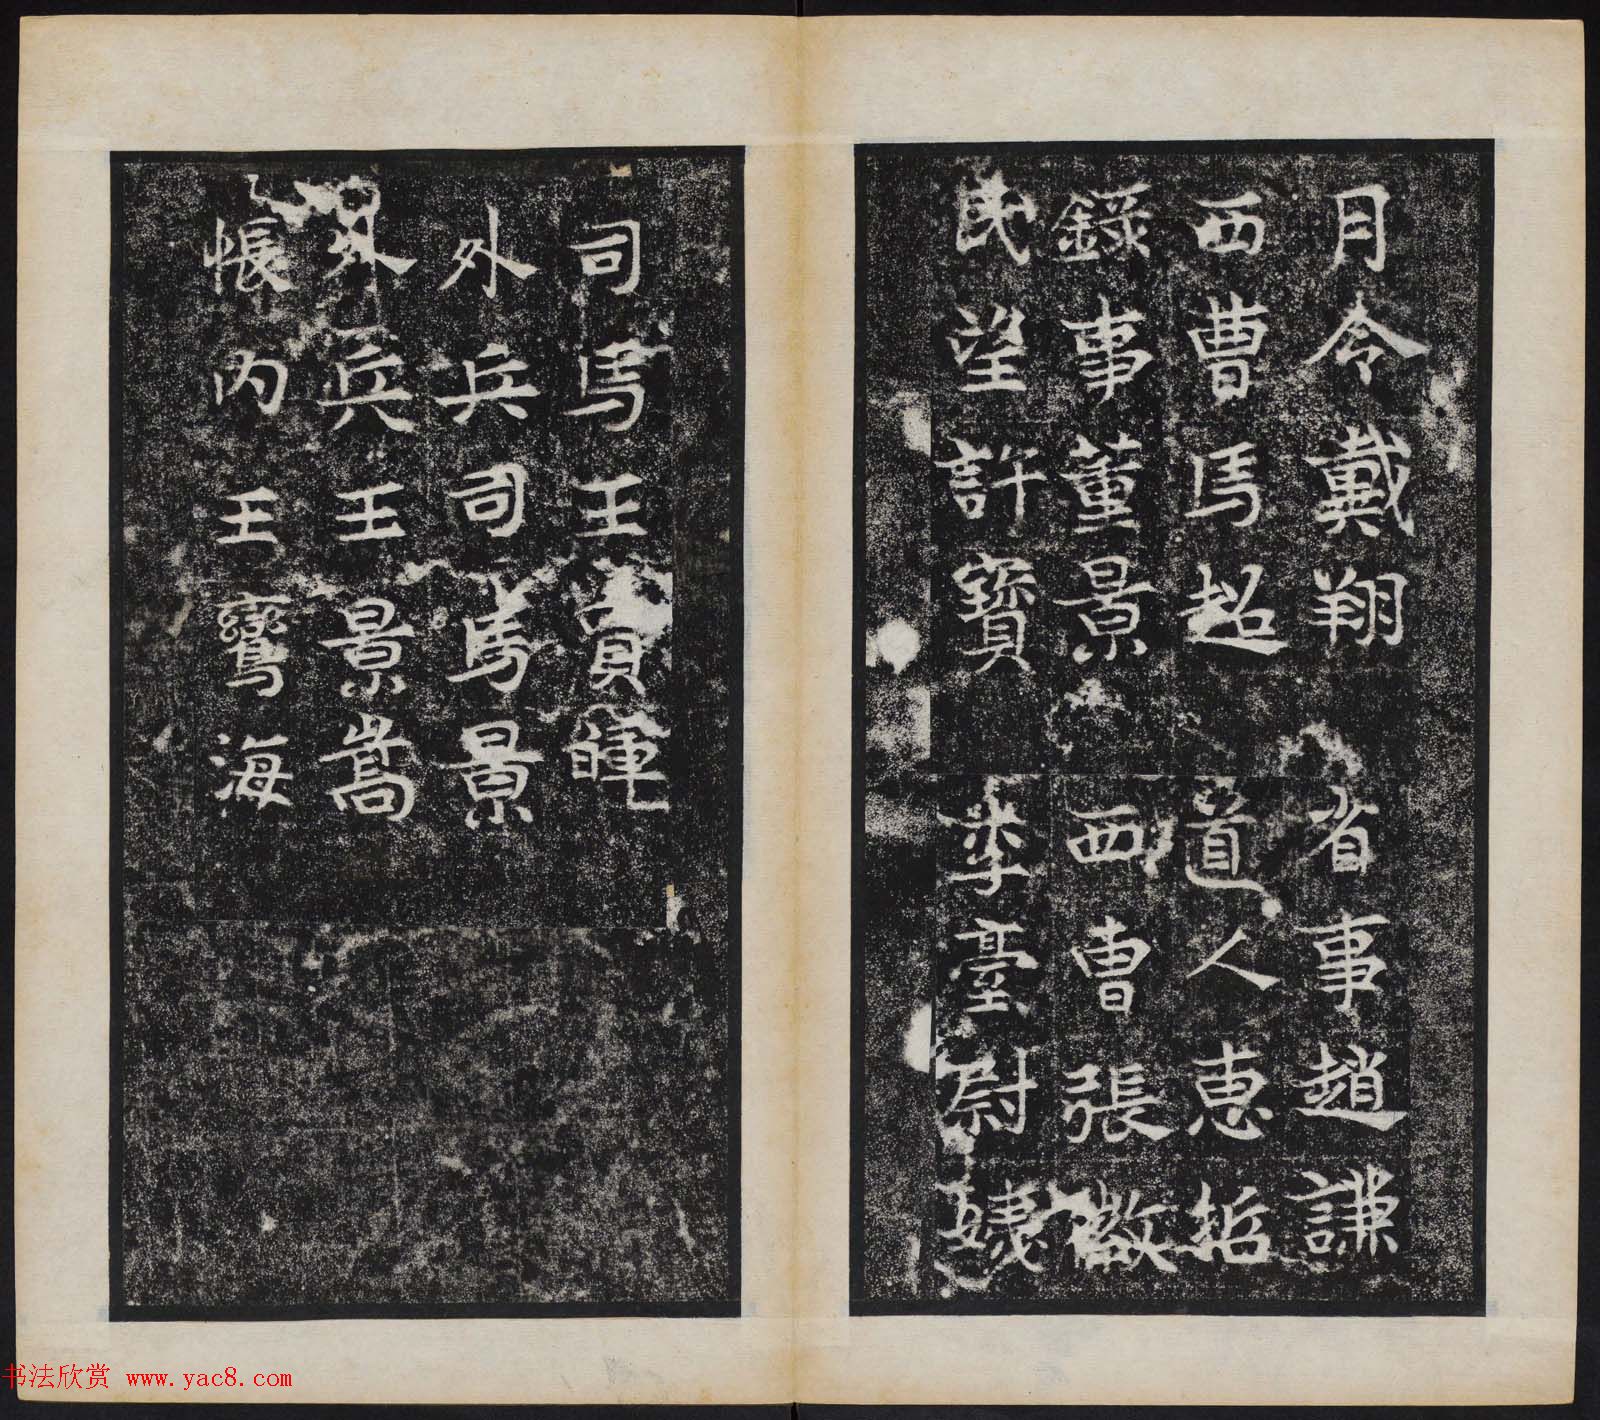 月令戴翔 省事趙謙
西曹馬超 道人惠哲
錄事董景 西曹張敬
民望許寶 李臺尉
司馬王賓暉
外兵司馬景
外兵王景嵩
帳內王鸞海
书法欣赏 www.yac8.com